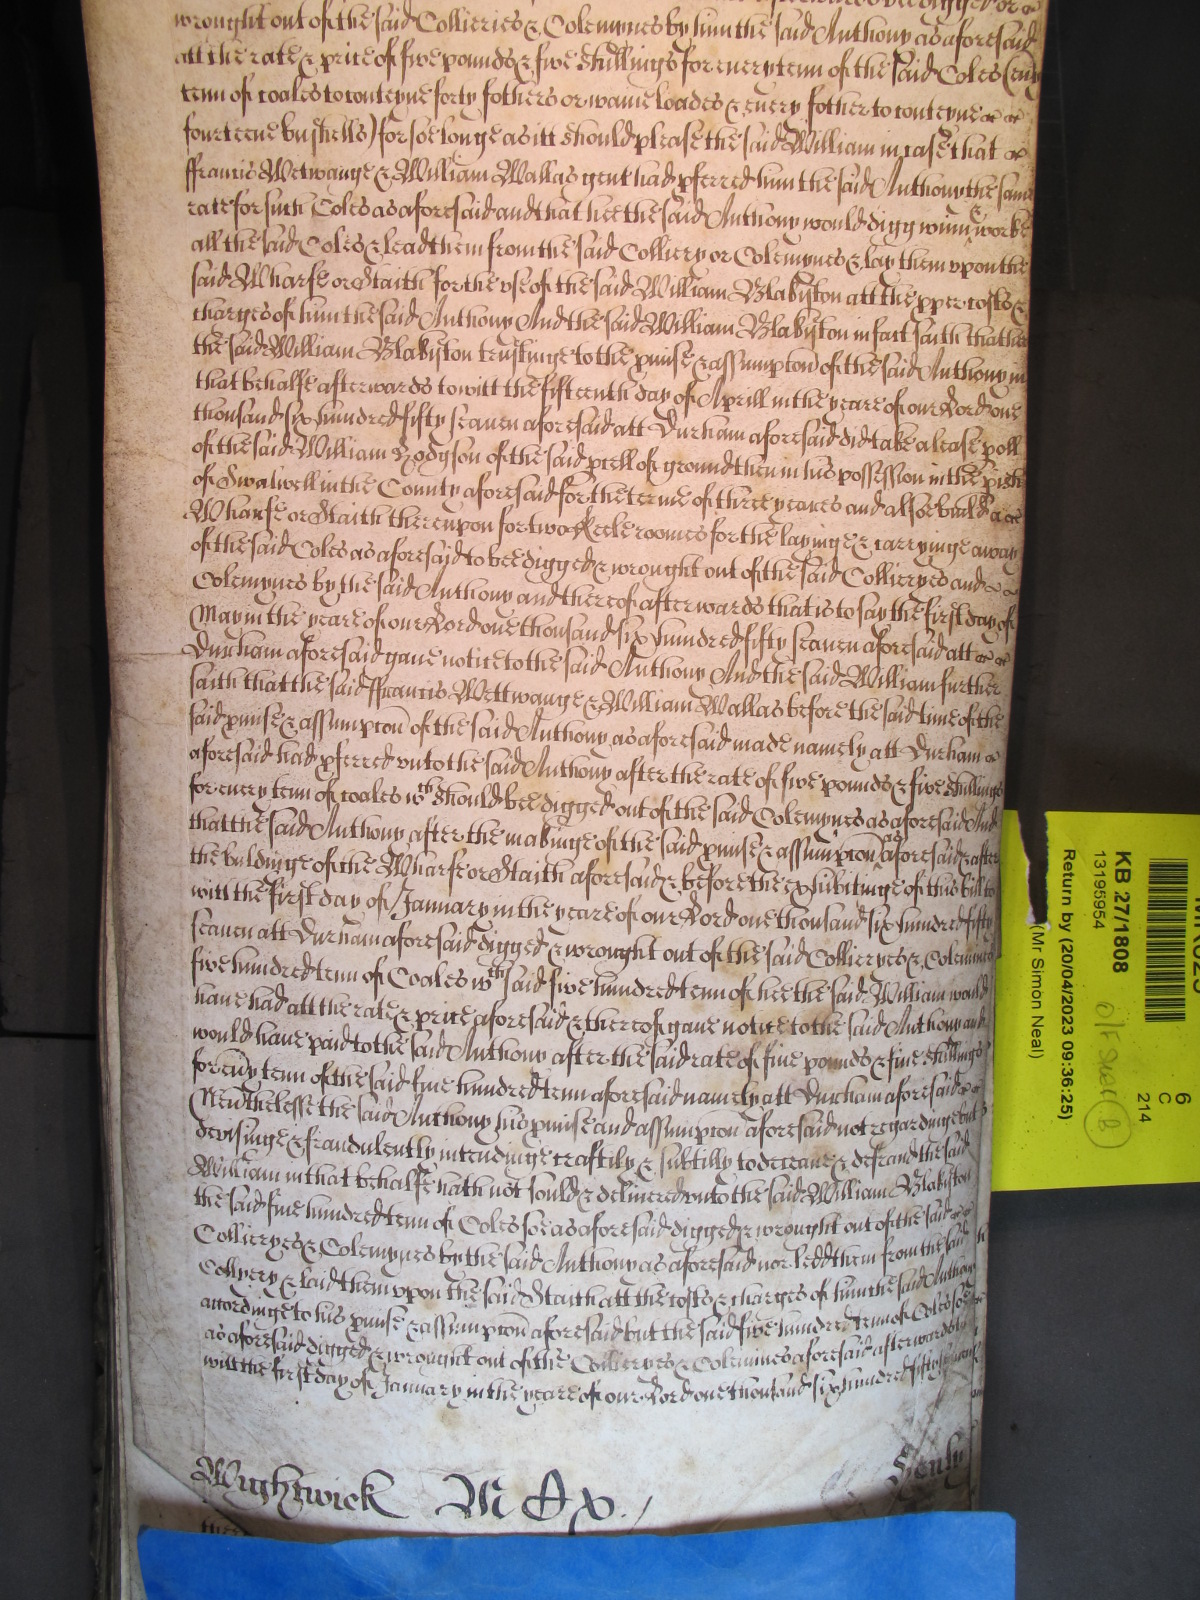 wrought out of the said Collieries & Colemynes by him the said Anthony as aforesaid
att the rate & price of five pounds & five shillings for every tenn of the said Coles (every
tenn of coales to conteyne forty fothers or waine loades & every fother to conteyne
fourteene bushells) for soe longe as itt should please the said William in case that
ffrancis Wetwange & William Wallas gent had pferred him the said Anthony the same
rate for such Coles as aforesaid and that hee the said Anthony would digg winn & worke
all the said Coles & lead them from the said Colliery or Colemynes & lay them upon the
said Wharfe or Staith for the use of the said William Blakiston att the pper costs &
charges of him the said Anthony And the said William Blakiston in fact saith that hee
the said William Blakiston trustinge to the pmise & assumpcon of the said Anthony in
that behalfe afterwards to witt the fifteenth day of Aprill in the yeare of our Lord one
thousand six hundred fifty seaven aforesaid att Durham aforesaid did take a lease poll
of the said William Hodgson of the said pcell of ground then in his possession in the pish
of Swalwell in the County aforesaid for the terme of three yeares and alsoe build a
Wharfe or Staith thereupon for two keele roomes for the layinge & carryinge away
of the said Coles as aforesaid to bee digged & wrought out of the said Collieryes and
Colemynes by the said Anthony and thereof afterwards that is to say the first day of
May in the yeare of our Lord one thousand six hundred fifty seaven aforesaid att
Durham aforesaid gave notice to the said Anthony And the said William further
saith that the said ffrancis Wettwange & William Wallas before the said time of the
said pmise & assumpcon of the said Anthony as aforesaid made namely att Durham
aforesaid had pferred unto the said Anthony after the rate of five pounds & five shillings
for every tenn of coales wch should bee digged out of the said Colemynes as aforesaid And
that the said Anthony after the makinge of the said pmise & assumpcon as aforesaid & after
the buildinge of the Wharfe or Staith aforesaid & before the exhibitinge of this bill to
witt the first day of January in the yeare of our Lord one thousand six hundred fifty
seaven att Durham aforesaid digged & wrought out of the said Collieryes & Colemines
five hundred tenn of Coales wch said five hundred tenn of hee the said William would
have had att the rate & price aforesaid & thereof gave notice to the said Anthony and
would have paid to the said Anthony after the said rate of five pounds & five shillings
for evy tenn of the said five hundred tenn aforesaid namely att Durham aforesaid
Nevthelesse the said Anthony his pmise and assumpcon aforesaid not regardinge but
devisinge & fraudulently intendinge craftily & subtilly to deceave & defraud the said
William in that behalfe hath not sould & delivered unto the said William Blakiston
the said five hundred tenn of Coles soe as aforesaid digged & wrought out of the said
Collieryes & Colemynes by the said Anthony as aforesaid nor ledd them from the said
Collyery & laid them upon the said Staith att the costs & charges of him the said Anthony
accordinge to his pmise & assumpcon aforesaid but the said five hundred tenn of Coles soe
as aforesaid digged & wrought out of the Collieryes & Colemines aforesaid afterwards to
witt the first day of January in the yeare of our Lord one thousand six hundred fifty seaven
Wightwick M Ex.
KB 27/1808
13195954
Return by (20/04/2023 09:36:25)
(Mr Simon Neal)
6
C
214